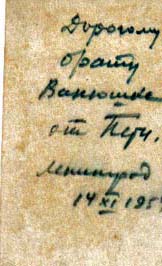 Дорогому
брату
Ванюшке
от Пети.
Ленинград
14 XI 195